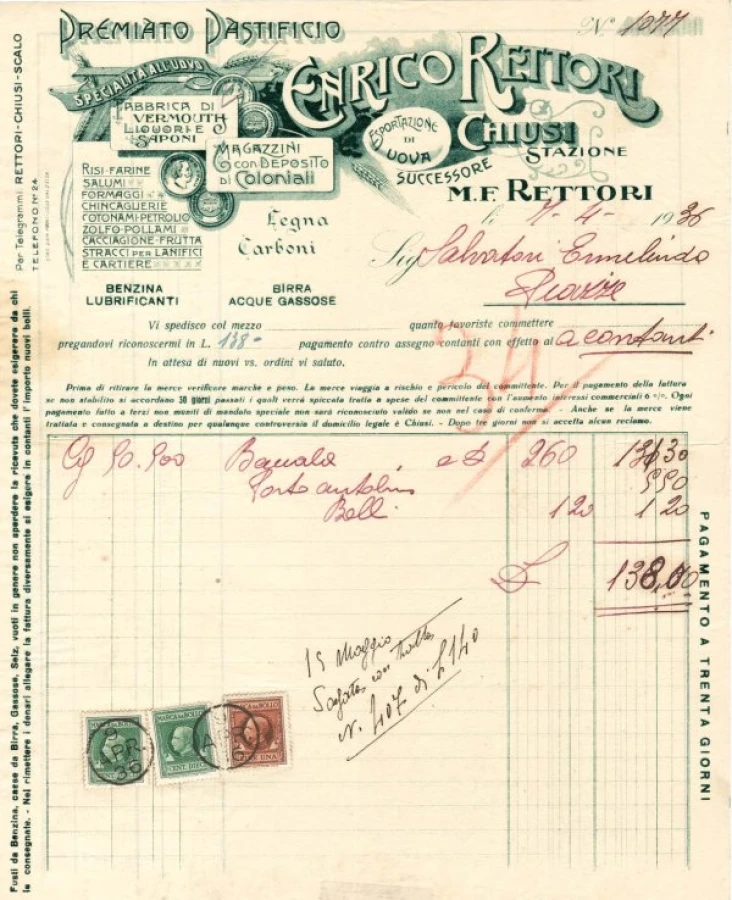 PREMIATO PASTIFICIO
Nº 1077
SPECIALITÀ ALL'UOVO
ENRICO RETTORI
FABBRICA DI
VERMOUTH
LIQUORI E
SAPONI
ESPORTAZIONE
DI
UOVA
CHIUSI
STAZIONE
MAGAZZINI
CON DEPOSITO
DI COLONIALI
SUCCESSORE
M.F. RETTORI
RISI-FARINE
SALUMI
FORMAGGI
CHINCAGLIERIE
COTONAMI-PETROLIO
ZOLFO-POLLAMI
CACCIAGIONE-FRUTTA
STRACCI PER LANIFICI
E CARTIERE
Legna
Carboni
BENZINA
LUBRIFICANTI
BIRRA
ACQUE GASSOSE
li 7-4-1936
Sig. Salvatori Ermelindo
Piazze
Vi spedisco col mezzo quanto favoriste commettere
pregandovi riconoscermi in L. 138- pagamento contro assegno contanti con effetto al a contanti
In attesa di nuovi vs. ordini vi saluto.
34
Prima di ritirare la merce verificare marche e peso. La merce viaggia a rischio e pericolo del committente. Per il pagamento della fattura
se non stabilito si accordano 30 giorni passati i quali verrà spiccata tratta a spese del committente con l'aumento interessi commerciali 6 o/o. Ogni
pagamento fatto a terzi non muniti di mandato speciale non sarà riconosciuto valido se non nel caso di conferma. - Anche se la merce viene
trattata e consegnata a destino per qualunque controversia il domicilio legale è Chiusi. - Dopo tre giorni non si accetta alcun reclamo.
50.500 a £ 260 131,30
Porto 5 50
Bolli 1 20 1 20
£ 138,00
15 Maggio
con tratta
N. 407 di £ 140
MARCA DA BOLLO
MARCA DA BOLLO
CENT. DIECI
MARCA DA BOLLO
LIRE UNA
9
APR.
36
9
APR.
36
PAGAMENTO A TRENTA GIORNI
Per Telegrammi RETTORI-CHIUSI-SCALO
TELEFONO Nº 24
Fusti da Benzina, casse da Birra, Gassose, Selz, vuoti in genere non sperdere la ricevuta che dovete esigerere da chi
le consegnate. - Nel rimettere i denari allegare la fattura diversamente si esigere in contanti l'importo nuovi bolli.